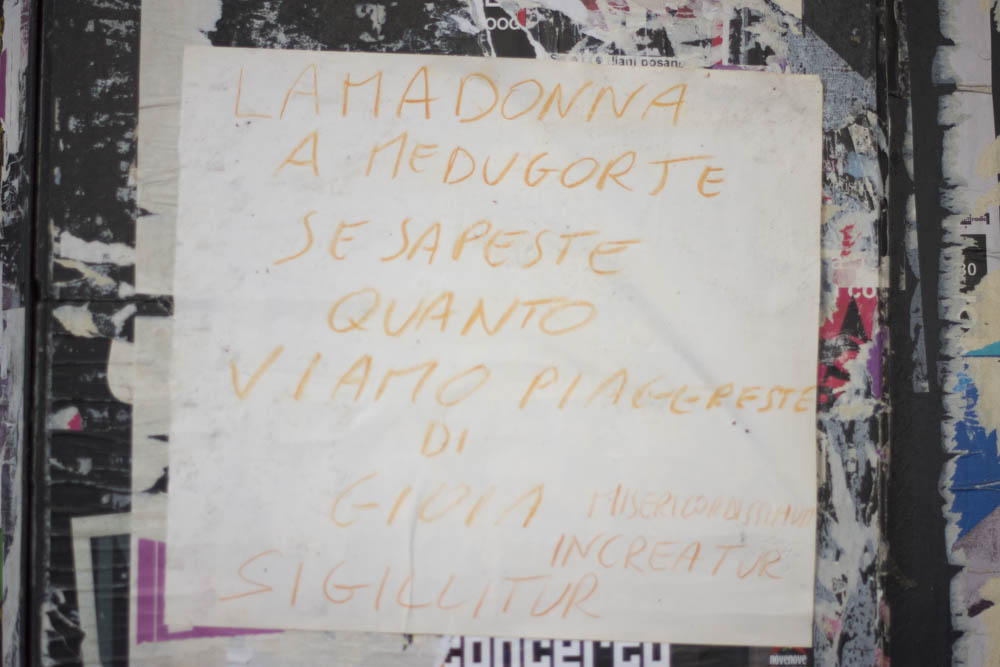 000
diani posano
LA MADONNA
A MEDUGORTE
SE SAPESTE
QUANTO
VIAMO PIAGGERESTE
DI
GIOIA MISERICORDISSIMUM
INCREATUR
SIGILLITUR
concerto
novenove
30